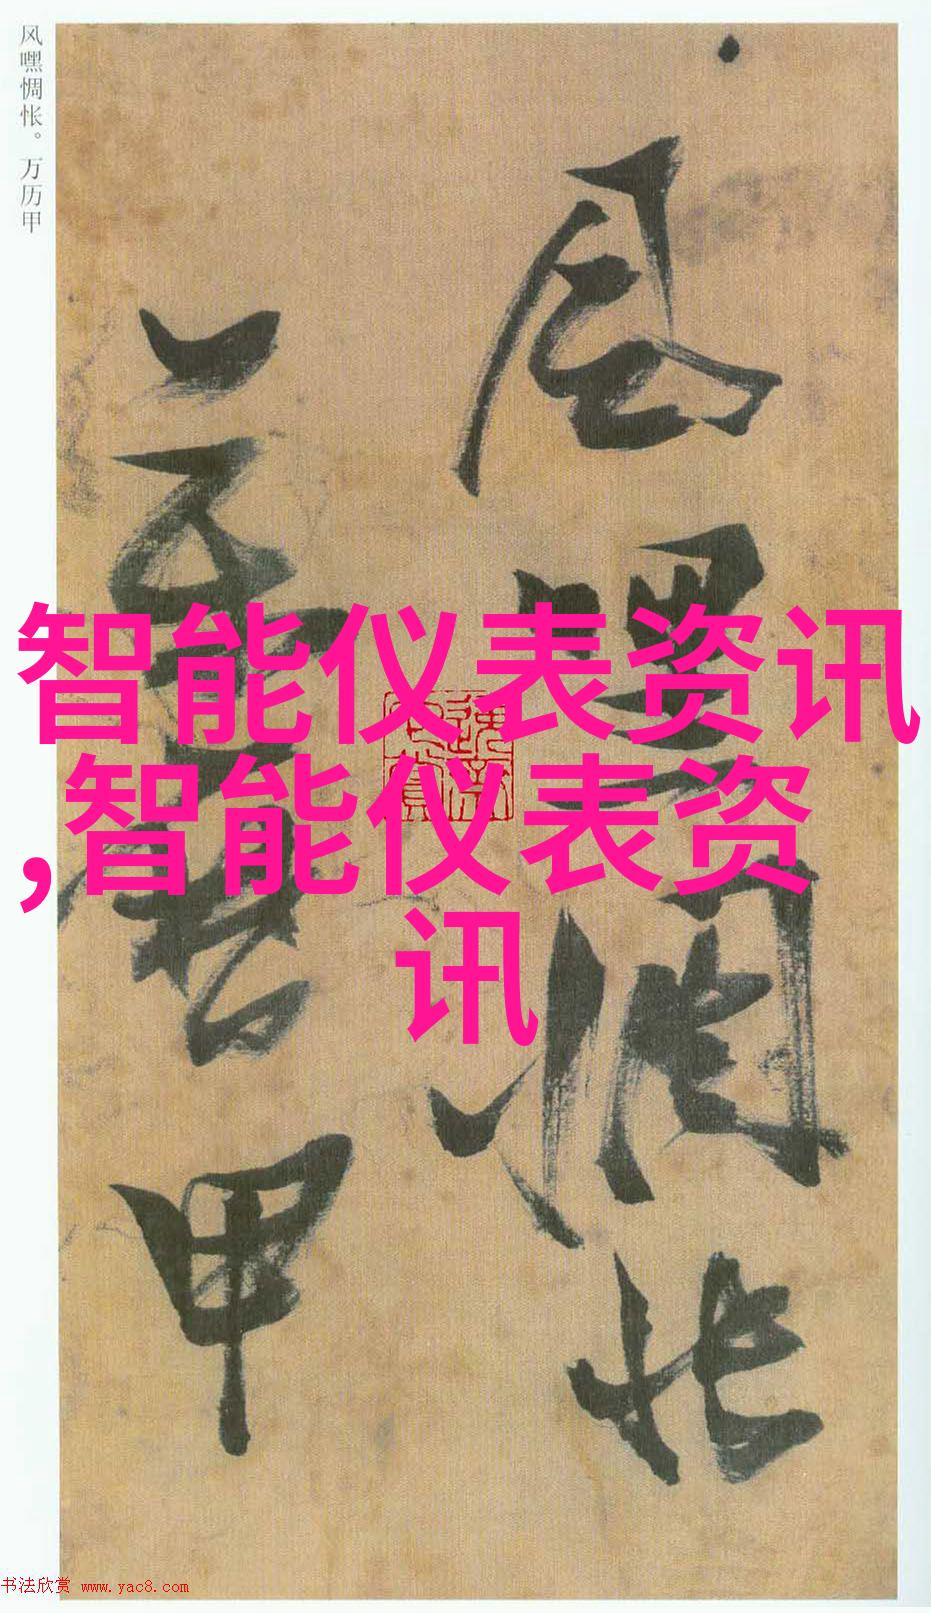 风嘿惆怅。万历甲
风嘿惆怅
万历甲
智能仪表资讯
,智能仪表资
讯
书法欣赏 www.yac8.com